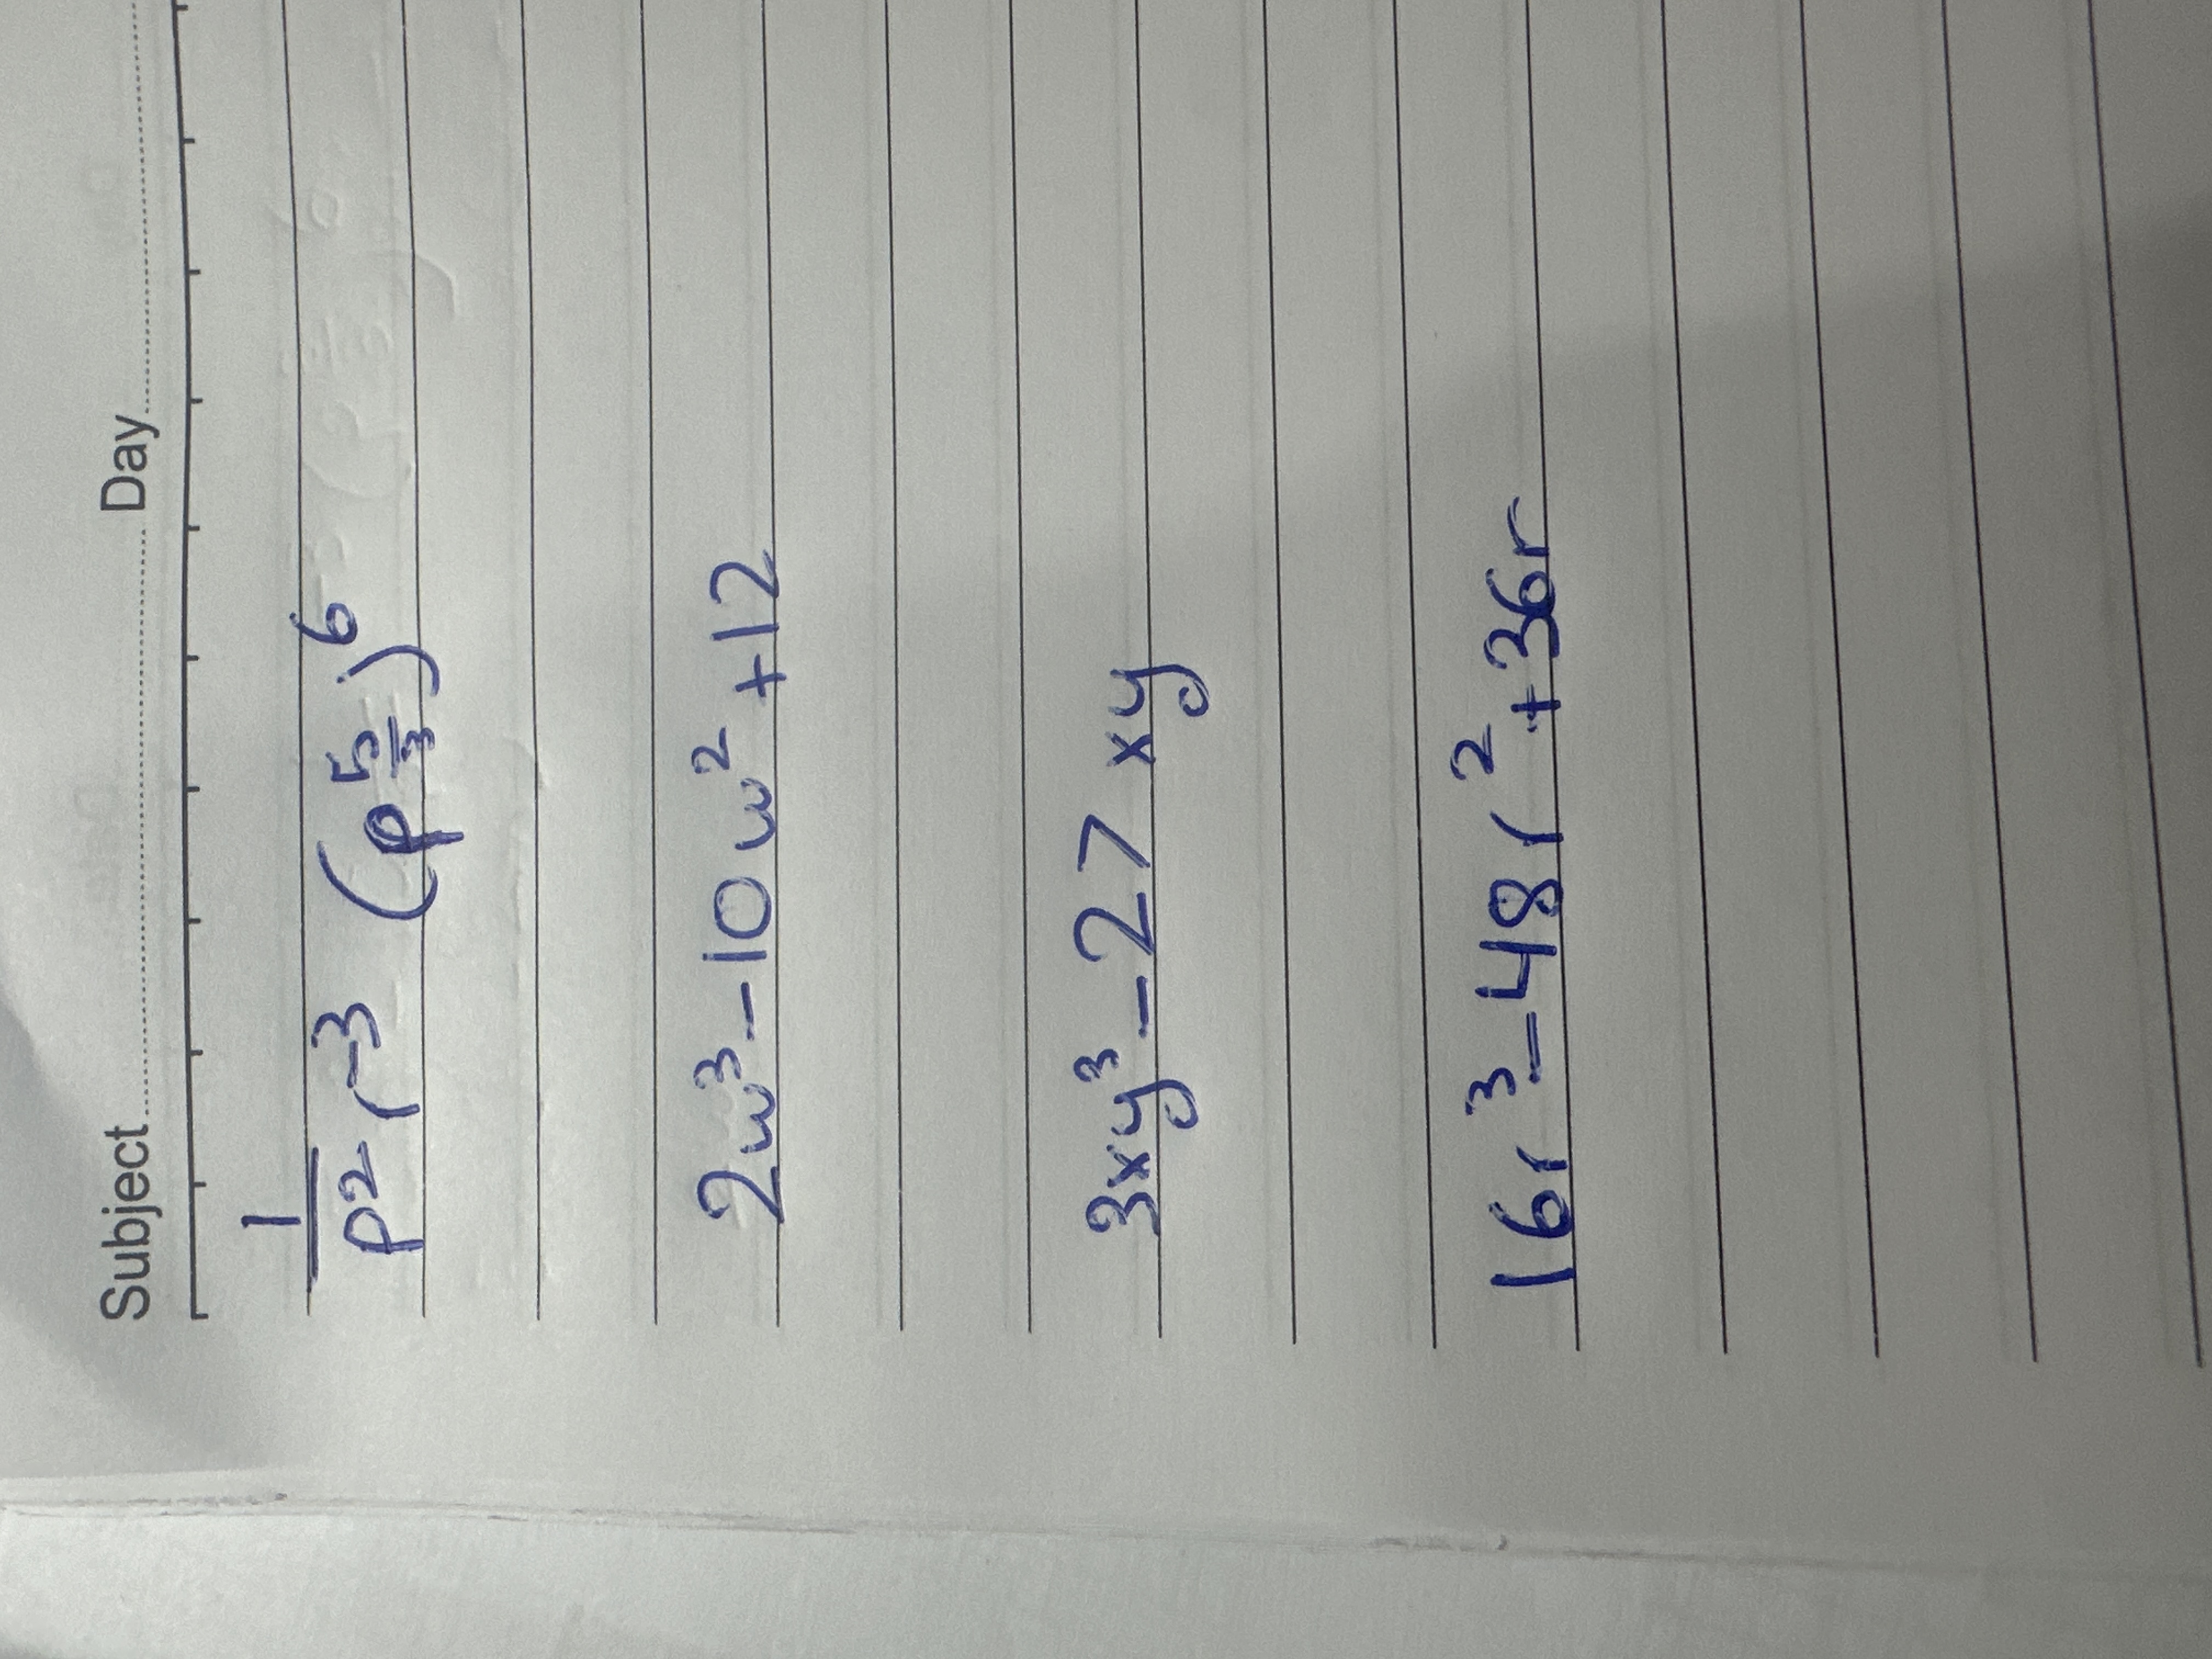 Subject........................ Day........................
1/p² r⁻³ (p^(5/3))⁶
2w³-10w²+12
3xy³-27xy
16r³-48r²+36r